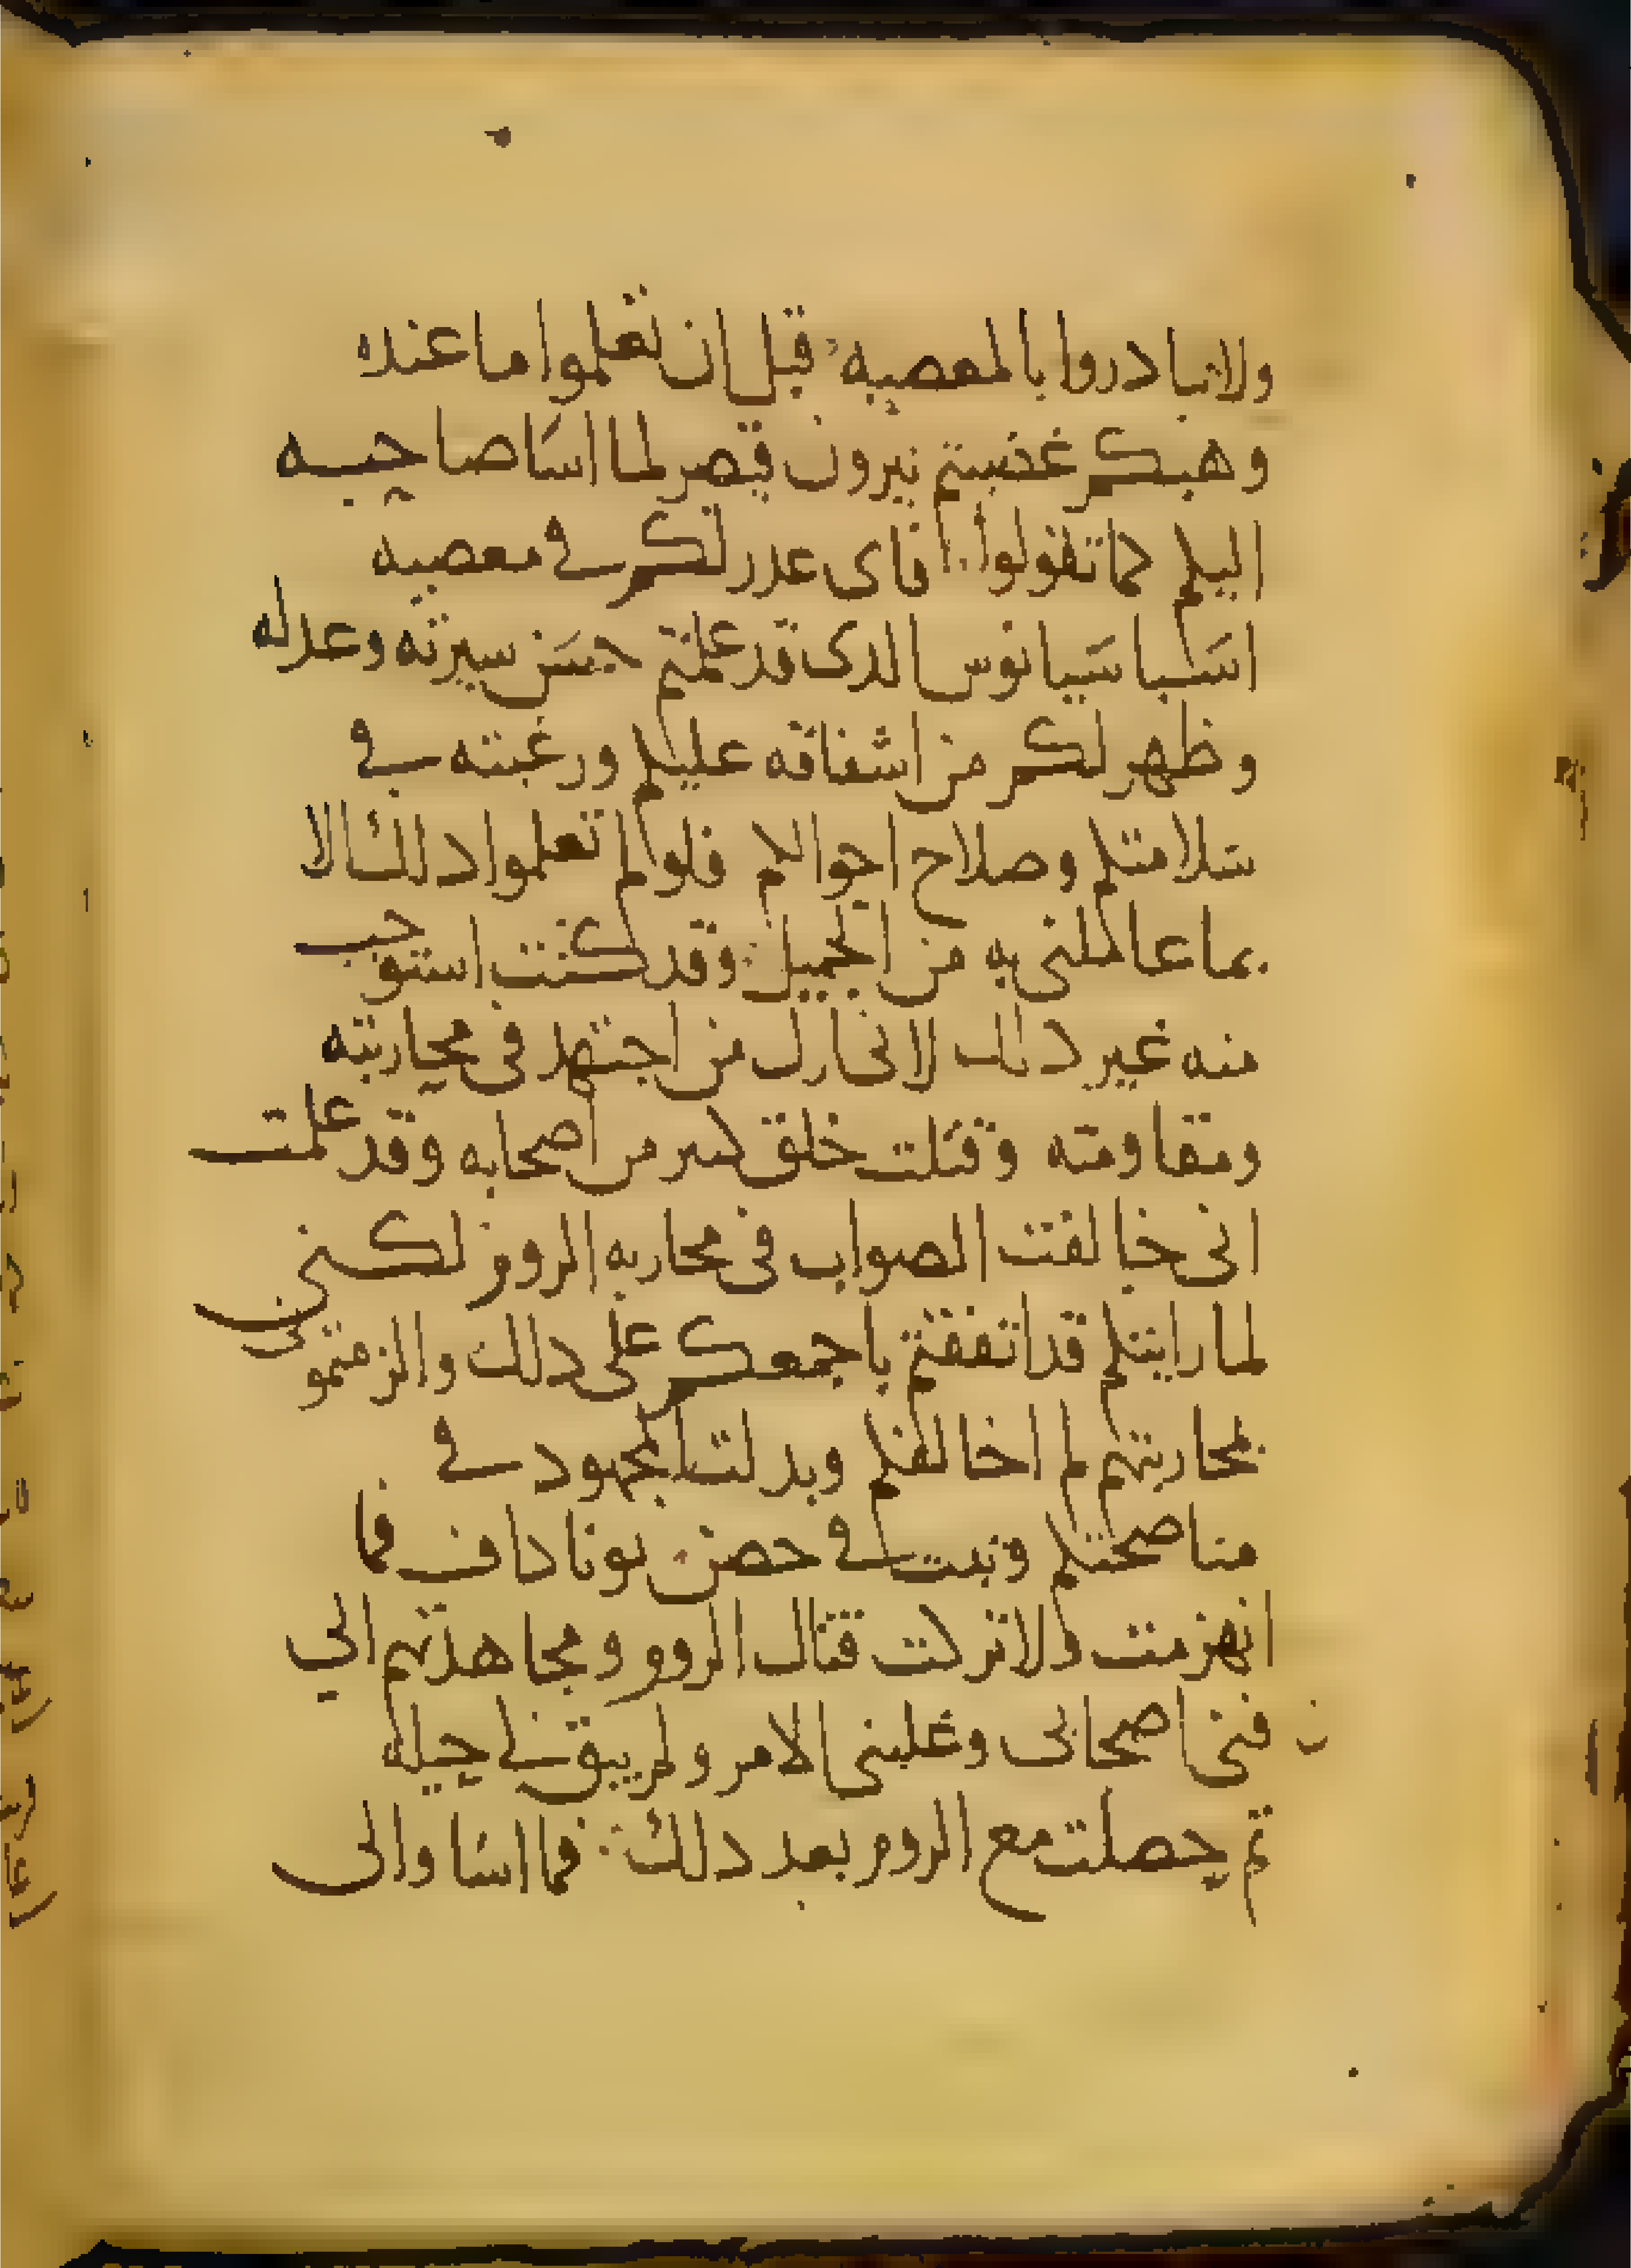 ولا تبادروا بالمعصيه قبل ان تعلموا ما عنده
وهبكم غضبتم نيرون قيصر لما اسا صاحبه
اليكم كما تقولوا فاى عدر لكم في معصيه
اسباسيانوس الدى قد علمتم حسن سيرته وعدله
وظهر لكم من اشفاقه عليكم ورغبته في
سلامتكم وصلاح احوالكم فلو لم تعلموا دلك الا
بما عاملنى به من الجميل وقد كنت استوجب
منه غير دلك لانى ازل من اجتهد فى محاربته
ومقاومته وقتلت خلق كثير من اصحابه وقد علمت
انى خالفت الصواب فى محاربه الروم لكننى
لما رايتكم قد اتفقتم باجمعكم على دلك والزمتمونى
بمحاربتهم لم اخالفكم وبدلت المجهود في
مناصحتكم وثبت في حصن يوناداف فما
انهزمت ولا تركت قتال الروم ومجاهدتهم الي
ن فنى اصحابى وغلبنى الامر ولم يبق لي حيله
ثم حصلت مع الروم بعد دلك فما اسا والى